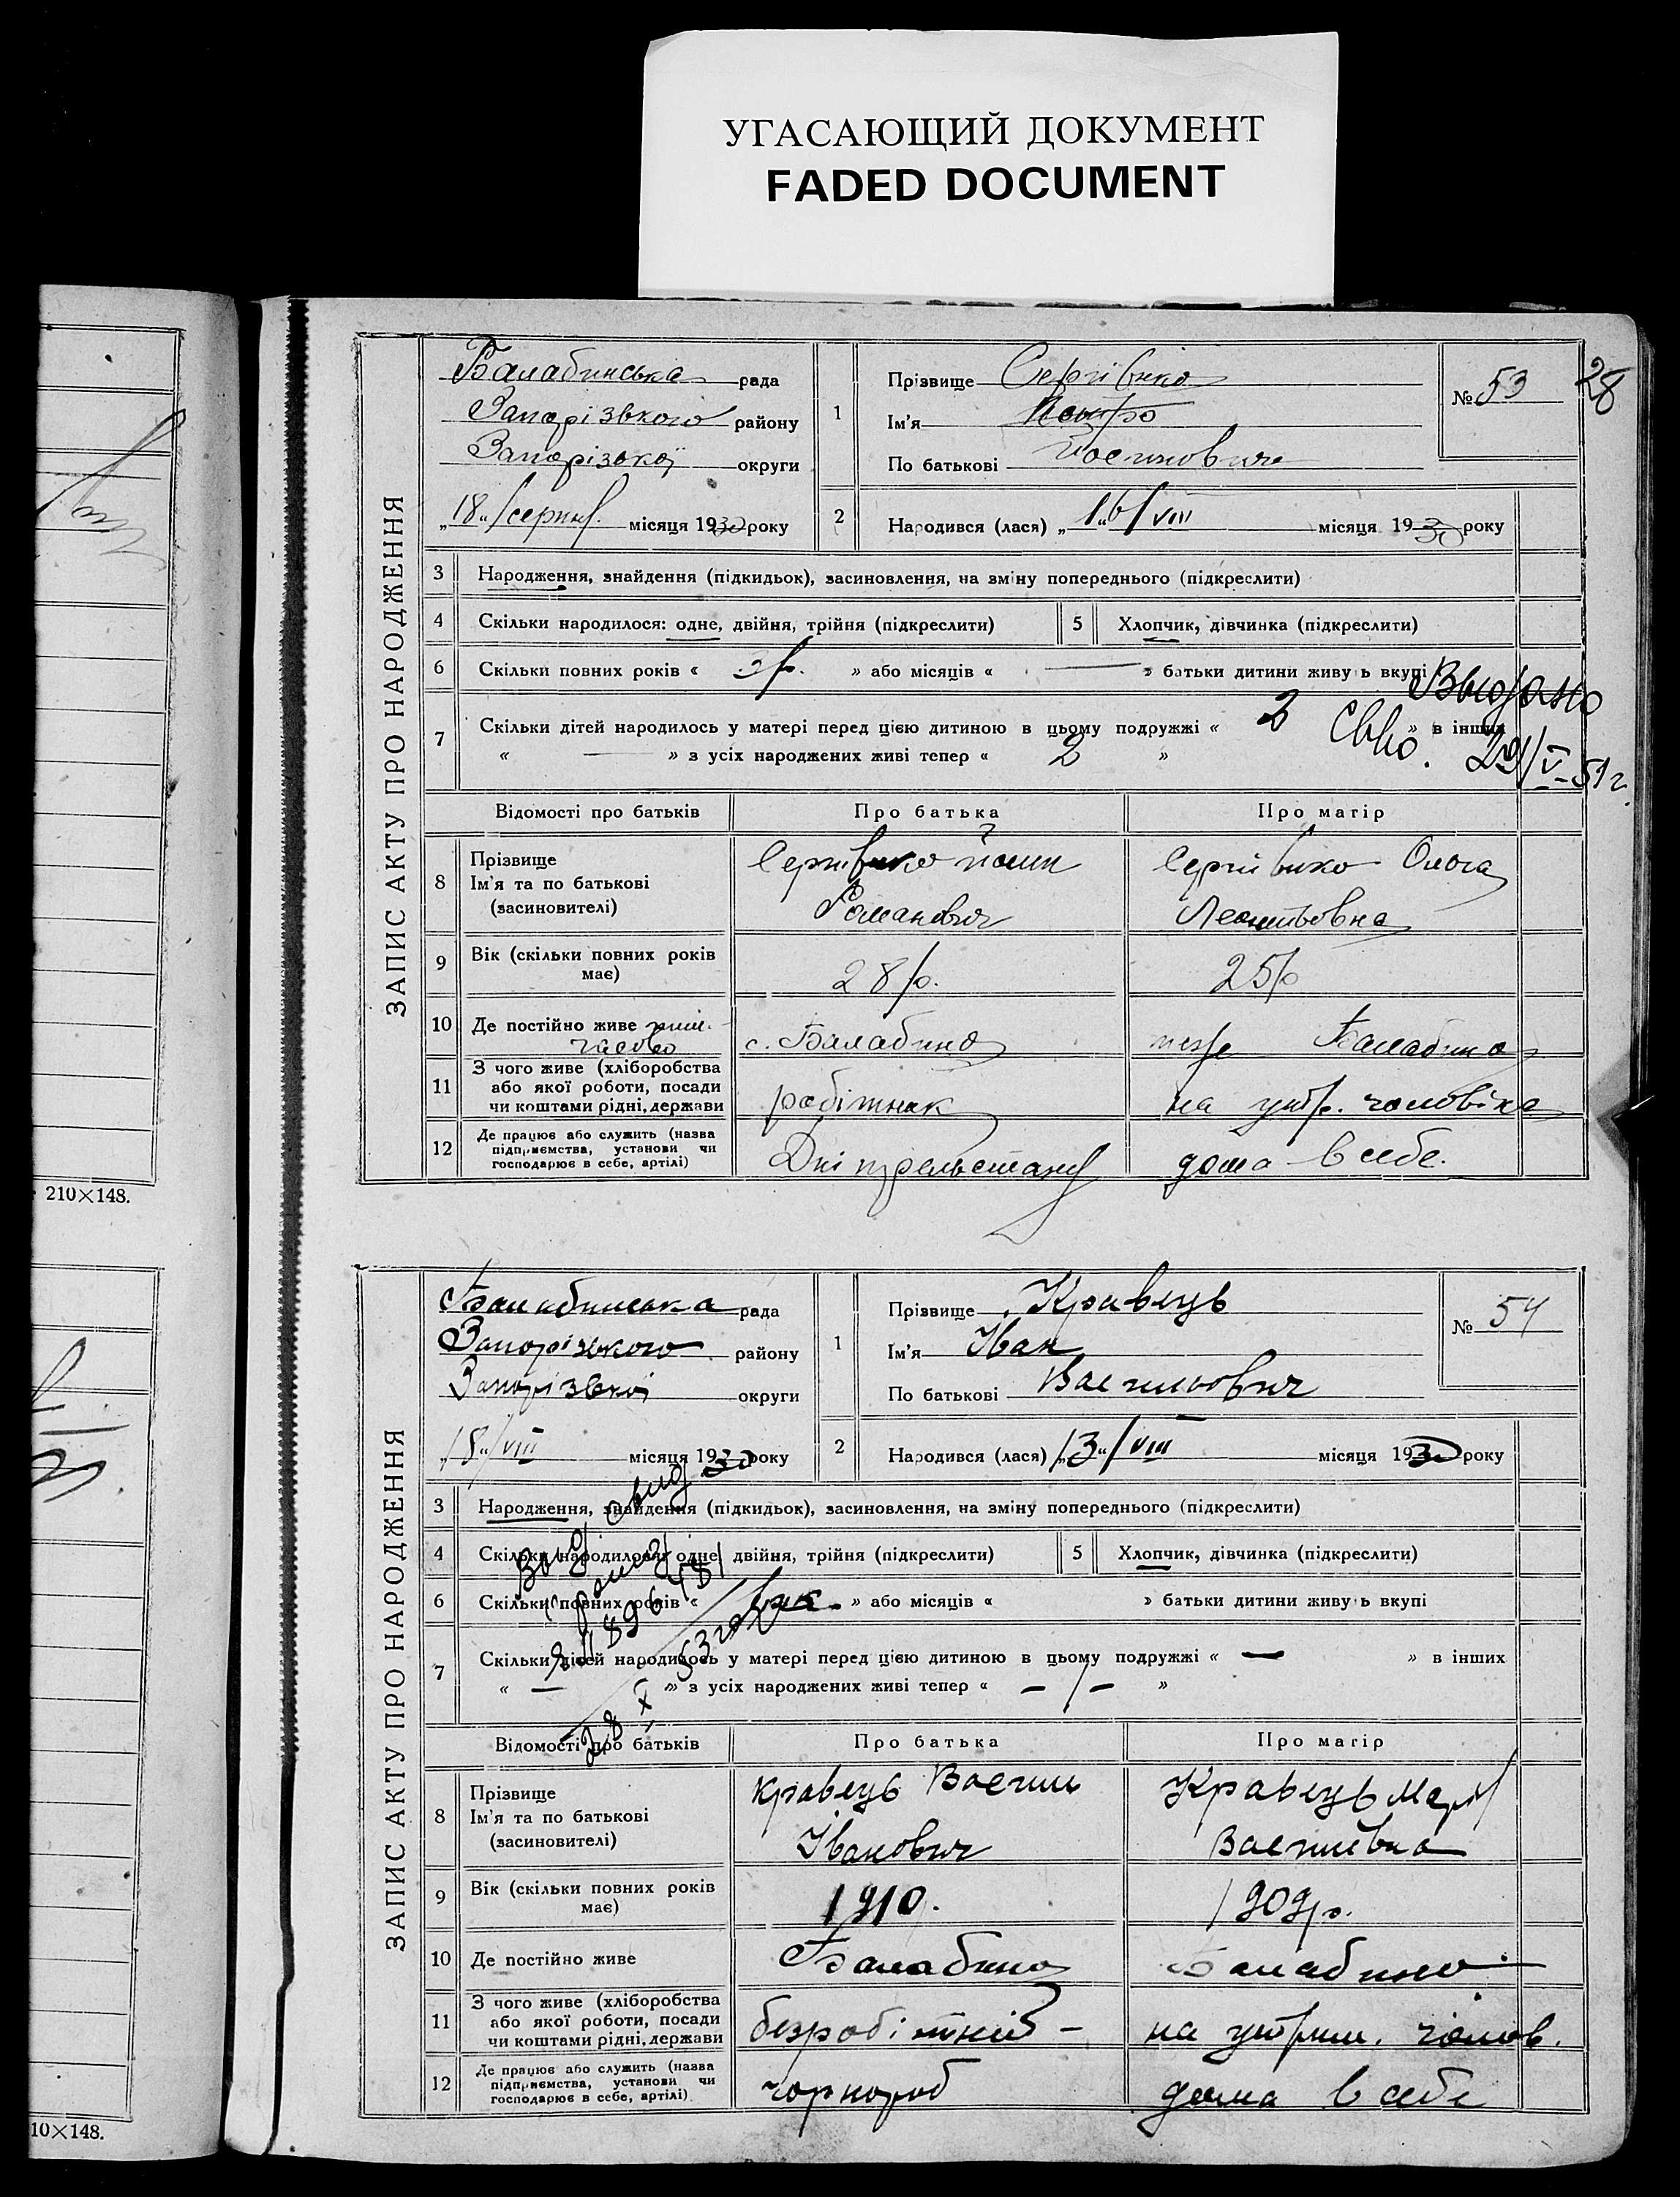 УГАСАЮЩИЙ ДОКУМЕНТ
FADED DOCUMENT
28
ЗАПИС АКТУ ПРО НАРОДЖЕННЯ
Балабинська рада
Запорізького району
Запорізької округи
„18“ серпня місяця 1930 року
1 Прізвище
Ім'я Петро
По батькові
№ 53
2 Народився (лася) „16“/VIII місяця 1930 року
3 Народження, знайдення (підкидьок), засиновлення, на зміну попереднього (підкреслити)
4 Скільки народилося: одне, двійня, трійня (підкреслити) 5 Хлопчик, дівчинка (підкреслити)
6 Скільки повних років « 3 р. » або місяців « — » батьки дитини живуть вкупі
Выдано
7 Скільки дітей народилось у матері перед цією дитиною в цьому подружжі « 2 » в інших
« — » з усіх народжених живі тепер « 2 »
29/V-51 г.
Відомості про батьків Про батька Про матір
8 Прізвище
Ім'я та по батькові
(засиновителі)
Романович
Ольга
Леонтьовна
9 Вік (скільки повних років має) 28 р. 25 р
10 Де постійно живе с. Балабино Балабино
11 З чого живе (хліборобства або якої роботи, посади чи коштами рідні, держави робітник на утр. чоловіка
12 Де працює або служить (назва підприємства, установи чи господарює в себе, артілі) дома в себе.
210×148.
ЗАПИС АКТУ ПРО НАРОДЖЕННЯ
Балабинська рада
Запорізького району
Запорізької округи
„18“/VIII місяця 1930 року
1 Прізвище Кравець
Ім'я Іван
По батькові Васильович
№ 54
2 Народився (лася) „13“/VIII місяця 1930 року
3 Народження, знайдення (підкидьок), засиновлення, на зміну попереднього (підкреслити)
4 Скільки народилося: одне, двійня, трійня (підкреслити) 5 Хлопчик, дівчинка (підкреслити)
6 Скільки повних років « » або місяців « » батьки дитини живуть вкупі
7 Скільки дітей народилось у матері перед цією дитиною в цьому подружжі « — » в інших
« — » з усіх народжених живі тепер « — / — »
Відомості про батьків Про батька Про матір
8 Прізвище
Ім'я та по батькові
(засиновителі)
Кравець Василь
Іванович
Кравець Марія
Василівна
9 Вік (скільки повних років має) 1910. 1909 р.
10 Де постійно живе Балабино Балабино
11 З чого живе (хліборобства або якої роботи, посади чи коштами рідні, держави безробітній – на утрим. чолов.
12 Де працює або служить (назва підприємства, установи чи господарює в себе, артілі) чорнороб дома в себе
10×148.